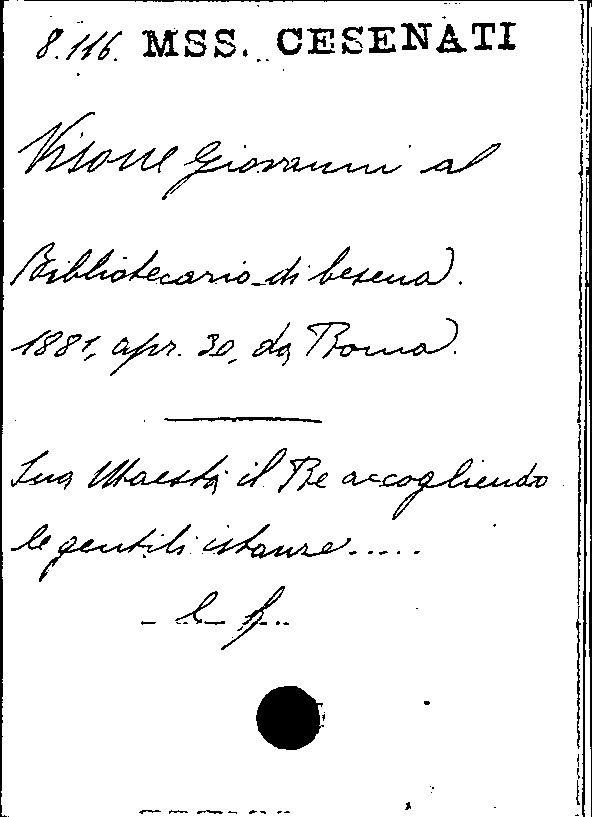 8.116. MSS. CESENATI
Visone Giovanni al
Bibliotecario di Cesena.
1881, apr. 30, da Roma.
Sua Maestà il Re accogliendo
le gentili istanze.....